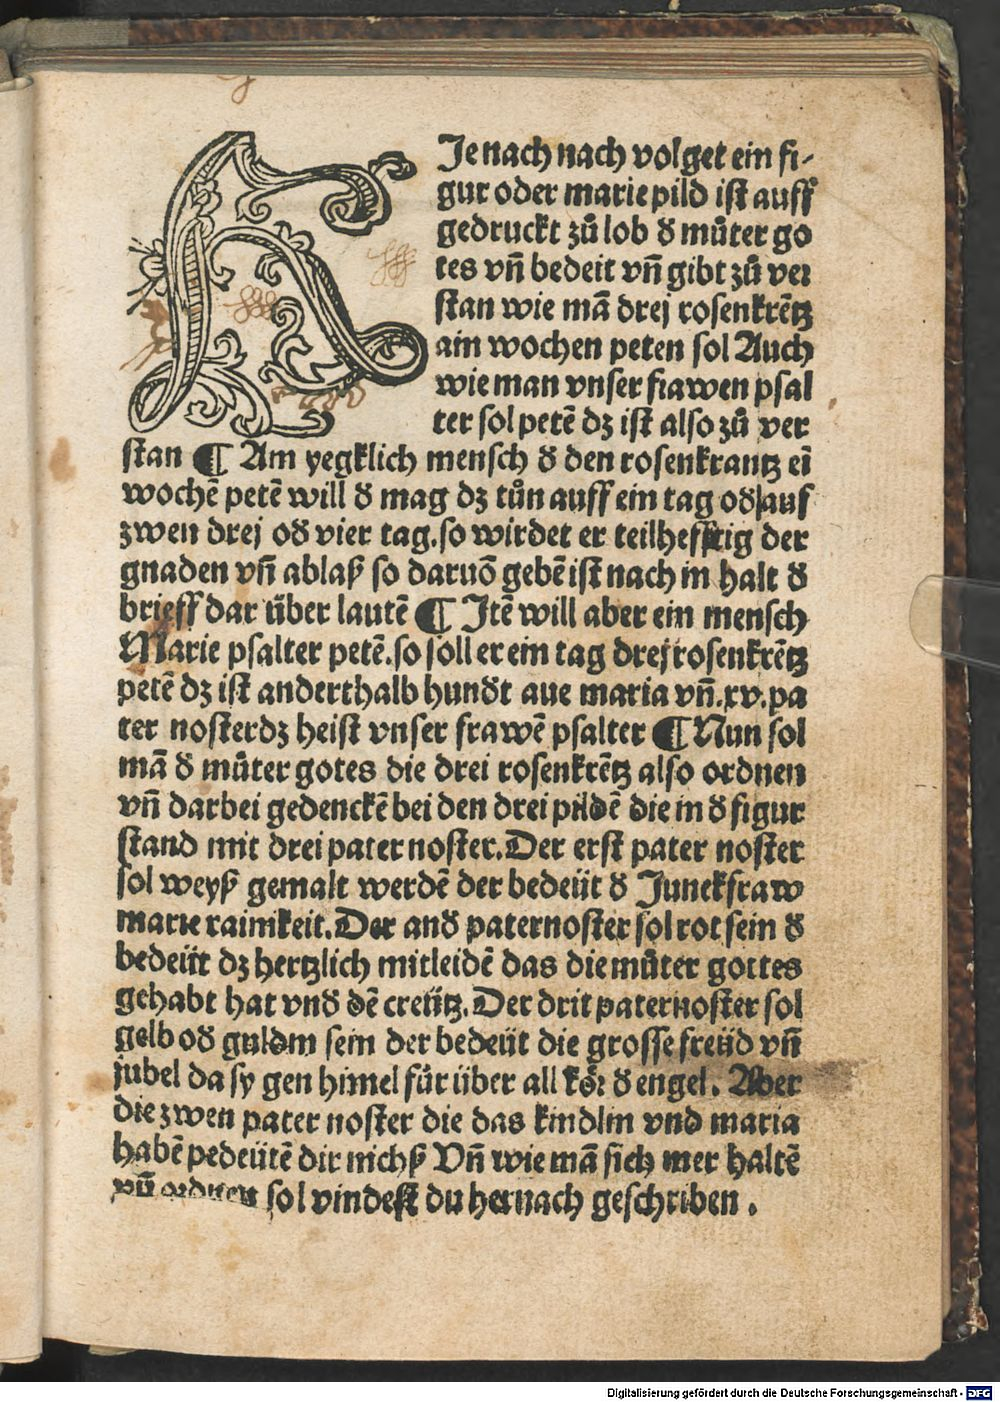 HIe nach nach volget ein fi-
gur oder marie pild ist auff
gedruckt zů lob d̕ můter go
tes vn̄ bedeit vn̄ gibt zů ver
stan wie mā drej rosenkrētz
ain wochen peten sol Auch
wie man vnser frawen psal
ter sol petē dz ist also zů ver
stan ¶ Am yegklich mensch d̕ den rosenkrantz eī
wochē petē will d̕ mag dz tůn auff ein tag od̕ auf
zwen drej od̕ vier tag. so wirdet er teilhefftig der
gnaden vn̄ ablaß so daruō gebē ist nach in halt d̕
brieff dar über lautē ¶ Itē will aber ein mensch
Marie psalter petē. so soll er ein tag drej rosenkrētz
petē dz ist anderthalb hund̕t aue maria vn̄ .xv. pa
ter noster dz heist vnser frawē psalter ¶ Nun sol
mā d̕ můter gotes die drei rosenkrētz also ordnen
vn̄ darbei gedenckē bei den drei pildē die in d̕ figur
stand mit drei pater noster. Der erst pater noster
sol weyß gemalt werdē der bedeüt d̕ Junckfraw
marie rainikeit. Der and̕ paternoster sol rot sein d̕
bedeüt dz hertzlich mitleidē das die můter gottes
gehabt hat vnd̕ dē creütz. Der drit paternoster sol
gelb od̕ guldin sein der bedeüt die grosse freüd vn̄
jubel da sy gen himel fůr über all kör d̕ engel. Aber
die zwen pater noster die das kindlin vnd maria
habē pedeütē dir nichß Vn̄ wie mā sich mer haltē
vn̄ ordnen sol vindest du hernach geschriben.
Digitalisierung gefördert durch die Deutsche Forschungsgemeinschaft - DFG